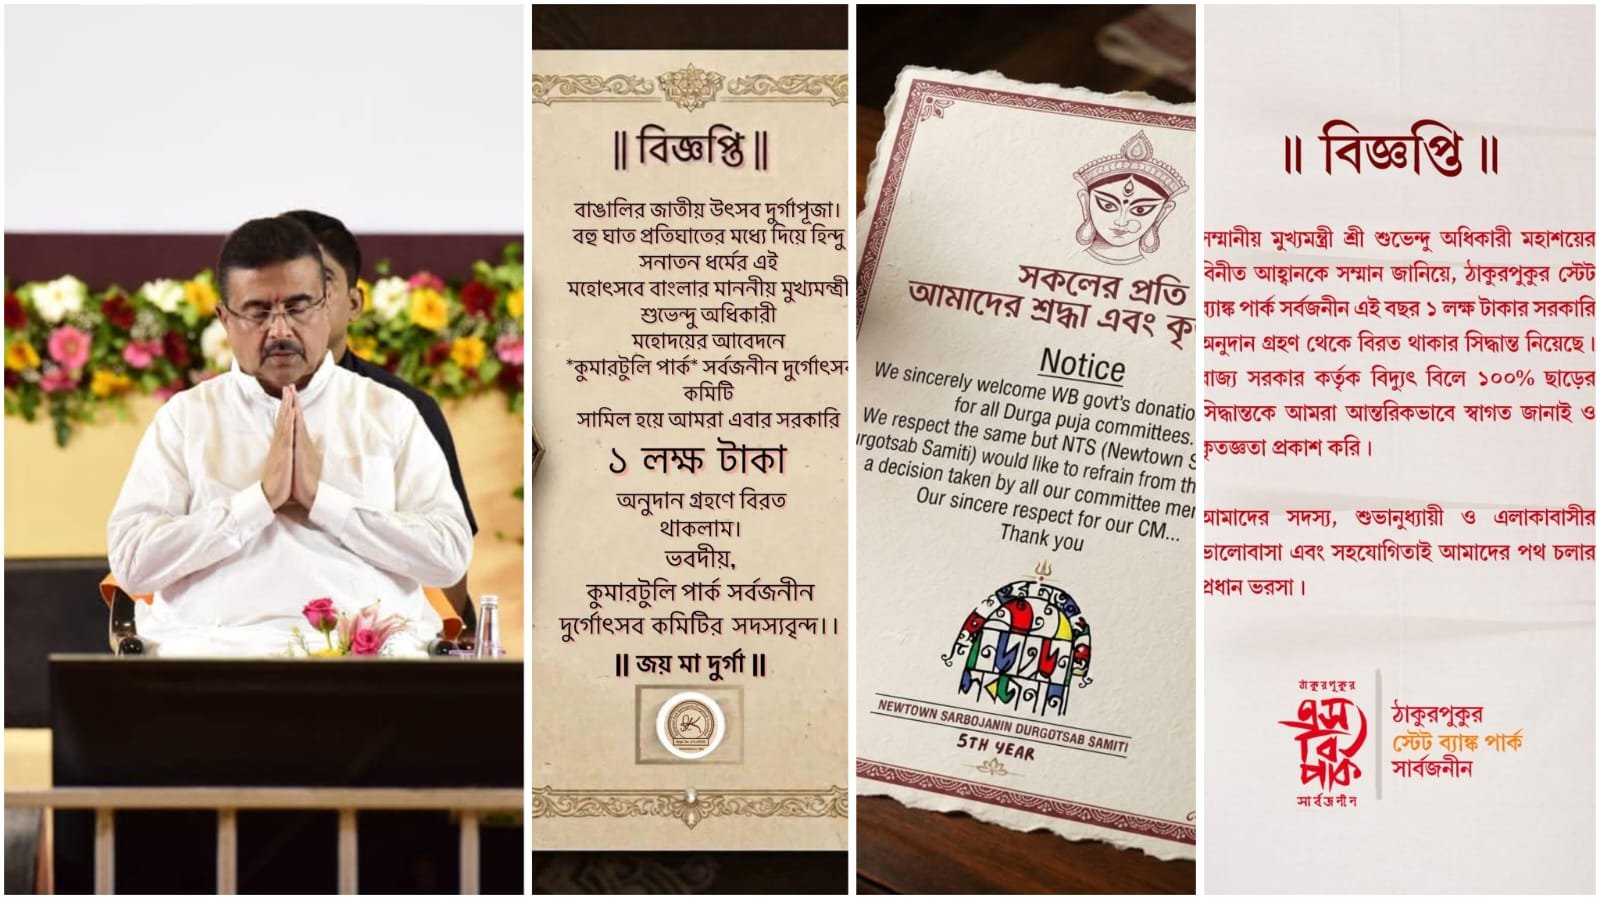 || বিজ্ঞপ্তি ||
বাঙালির জাতীয় উৎসব দুর্গাপূজা।
বহু ঘাত প্রতিঘাতের মধ্যে দিয়ে হিন্দু
সনাতন ধর্মের এই
মহোৎসবে বাংলার মাননীয় মুখ্যমন্ত্রী
শুভেন্দু অধিকারী
মহোদয়ের আবেদনে
*কুমারটুলি পার্ক* সর্বজনীন দুর্গোৎসব
কমিটি
সামিল হয়ে আমরা এবার সরকারি
১ লক্ষ টাকা
অনুদান গ্রহণে বিরত
থাকলাম।
ভবদীয়,
কুমারটুলি পার্ক সর্বজনীন
দুর্গোৎসব কমিটির সদস্যবৃন্দ।।
|| জয় মা দুর্গা ||
সকলের প্রতি
আমাদের শ্রদ্ধা এবং
Notice
We sincerely welcome WB govt's
for all Durga puja committees.
We respect the same but NTS (Newtown
Samiti) would like to refrain from
a decision taken by all our committee
Our sincere respect for our CM...
Thank you
NEWTOWN SARBOJANIN DURGOTSAB SAMITI
5TH YEAR
|| বিজ্ঞপ্তি ||
সম্মানীয় মুখ্যমন্ত্রী শ্রী শুভেন্দু অধিকারী মহাশয়ের
বিনীত আহ্বানকে সম্মান জানিয়ে, ঠাকুরপুকুর স্টেট
ব্যাঙ্ক পার্ক সর্বজনীন এই বছর ১ লক্ষ টাকার সরকারি
অনুদান গ্রহণ থেকে বিরত থাকার সিদ্ধান্ত নিয়েছে।
রাজ্য সরকার কর্তৃক বিদ্যুৎ বিলে ১০০% ছাড়ের
সিদ্ধান্তকে আমরা আন্তরিকভাবে স্বাগত জানাই ও
কৃতজ্ঞতা প্রকাশ করি।
আমাদের সদস্য, শুভানুধ্যায়ী ও এলাকাবাসীর
ভালোবাসা এবং সহযোগিতাই আমাদের পথ চলার
প্রধান ভরসা।
ঠাকুরপুকুর
এস বি পার্ক
সার্বজনীন
ঠাকুরপুকুর
স্টেট ব্যাঙ্ক পার্ক
সার্বজনীন